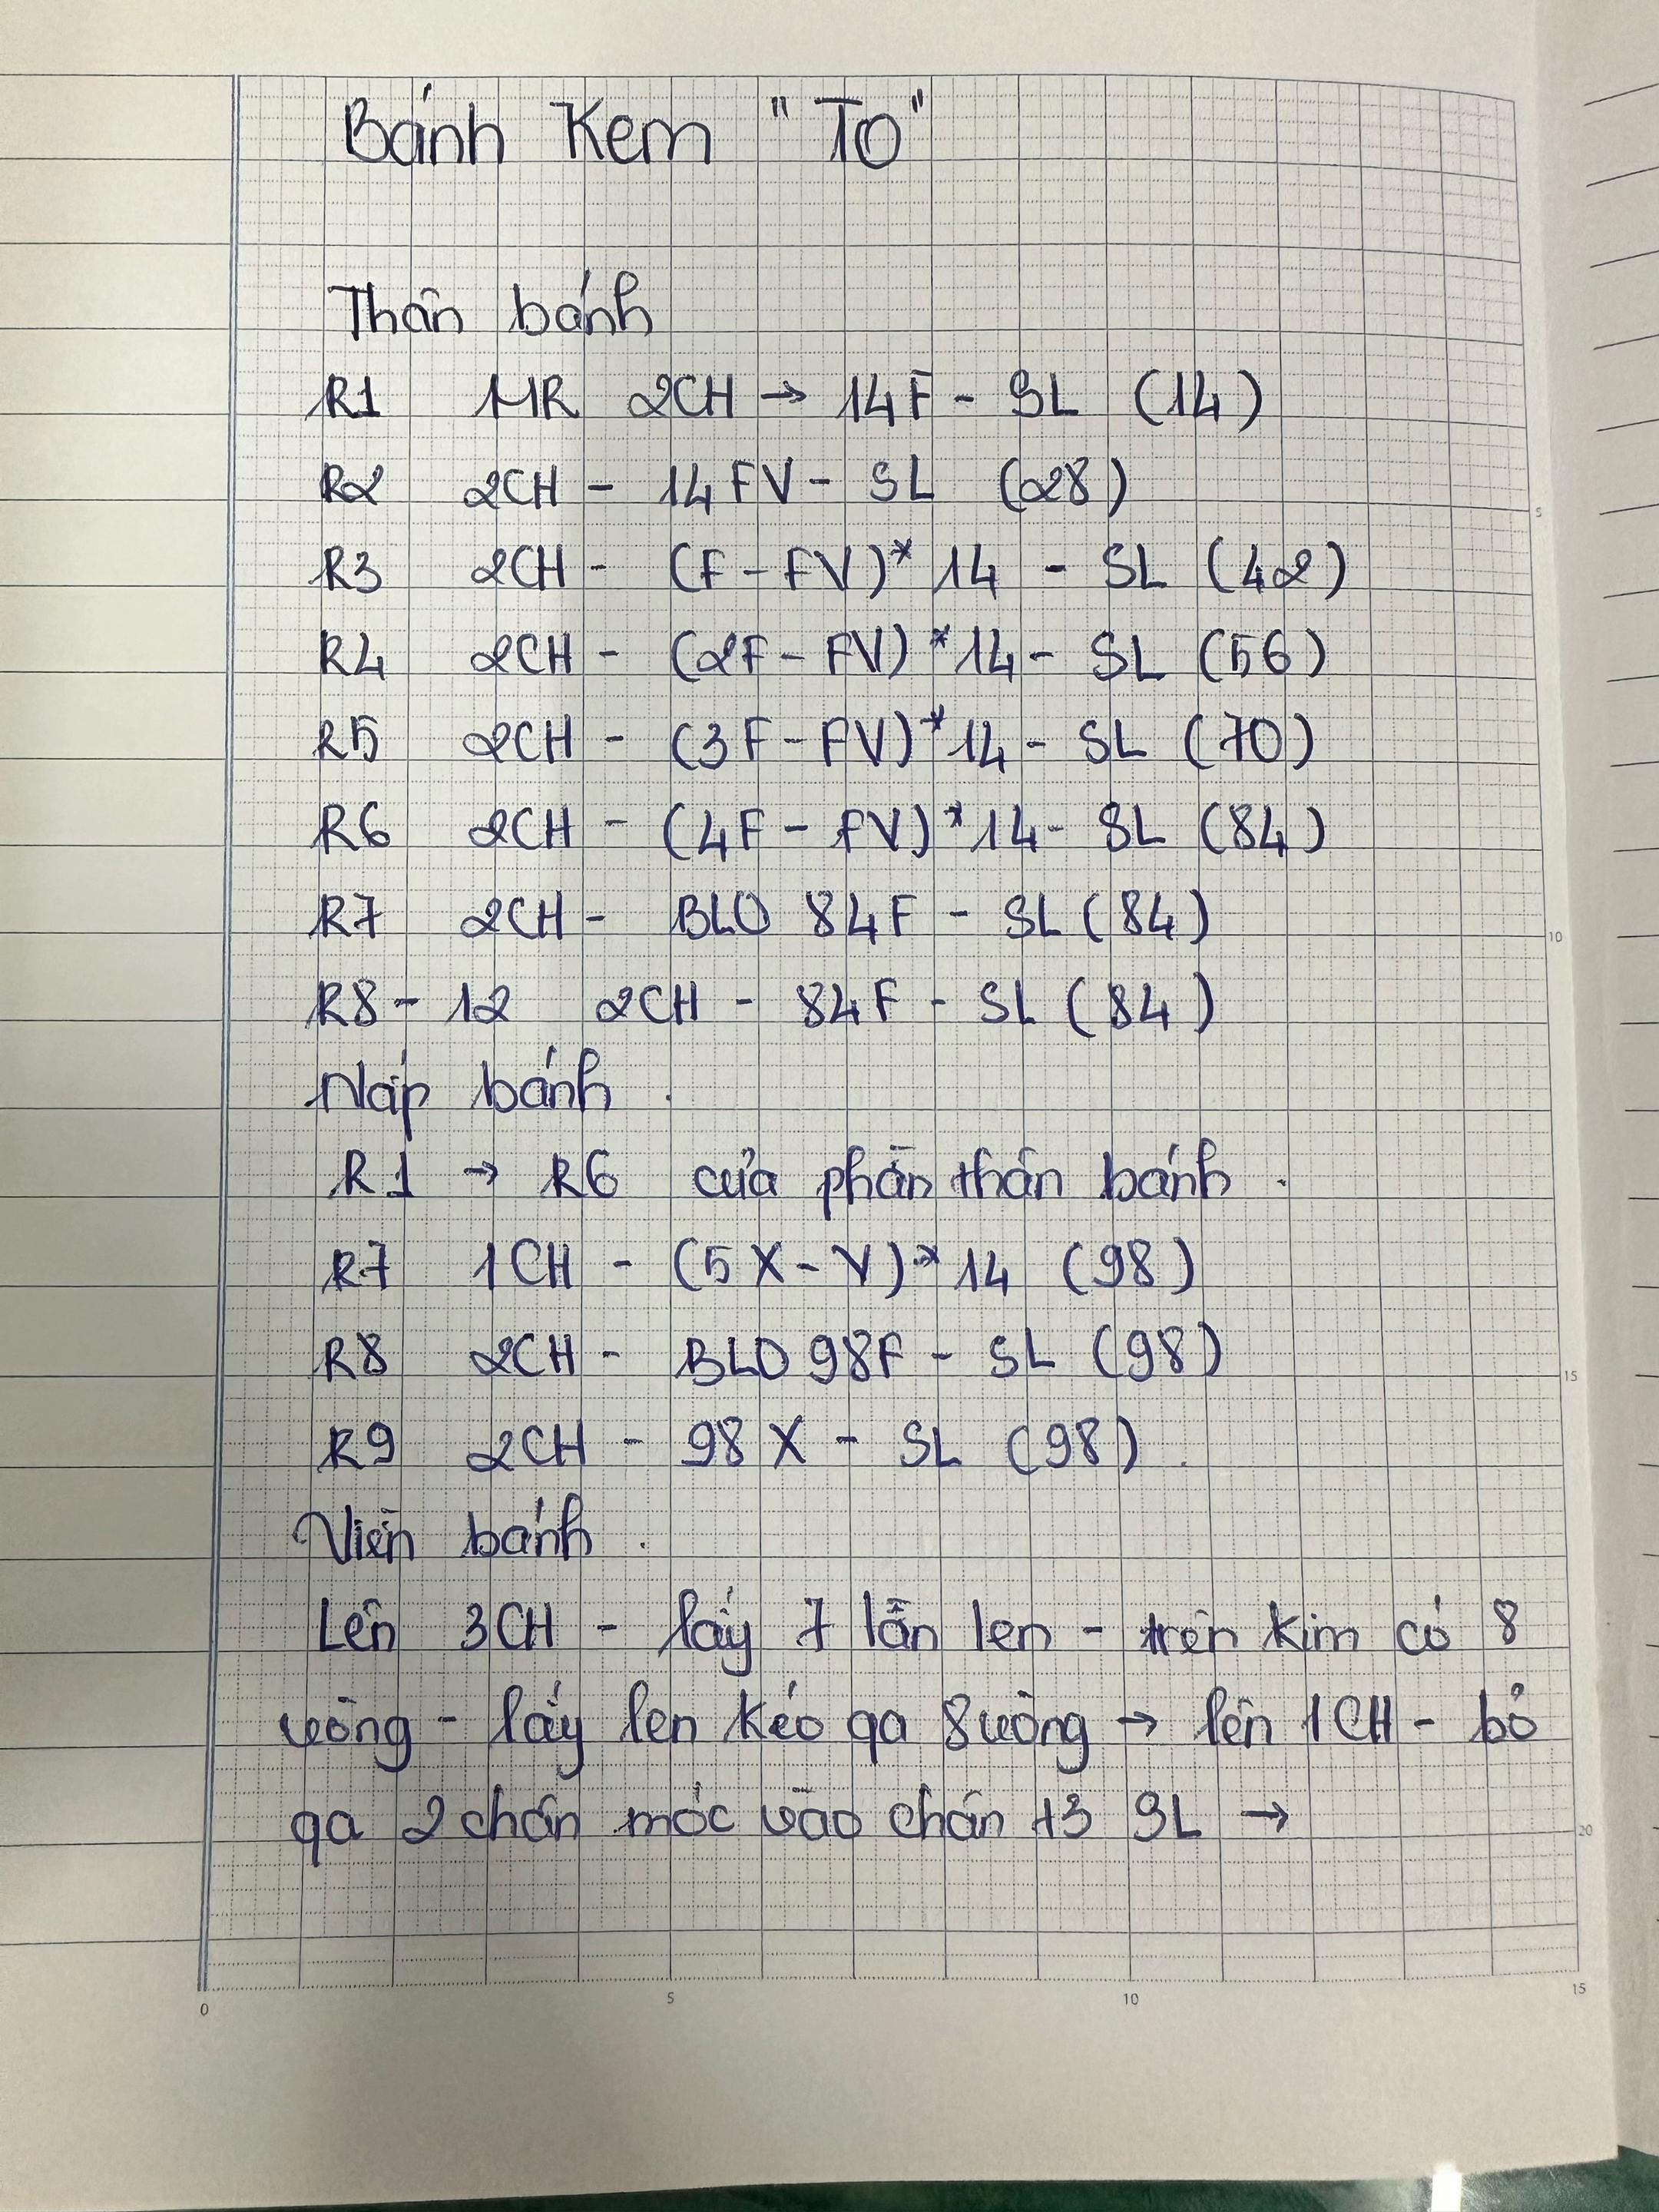 Bánh Kem "To"
Thân bánh
R1 MR 2CH → 14F - SL (14)
R2 2CH - 14FV - SL (28)
R3 2CH - (F - FV)* 14 - SL (42)
R4 2CH - (2F - FV) *14 - SL (56)
R5 2CH - (3F - FV)*14 - SL (70)
R6 2CH - (4F - FV)*14 - SL (84)
R7 2CH - BLO 84F - SL (84)
R8 - 12 2CH - 84F - SL (84)
Nắp bánh.
R1 → R6 của phần thân bánh.
R7 1CH - (5X - V)*14 (98)
R8 2CH - BLO 98F - SL (98)
R9 2CH - 98X - SL (98).
Viền bánh.
Lên 3CH - lấy 7 lần len - trên kim có 8
vòng - lấy len kéo qa 8 vòng → lên 1CH - bỏ
qa 2 chân móc vào chân t3 SL →
5
10
15
20
0 5 10 15